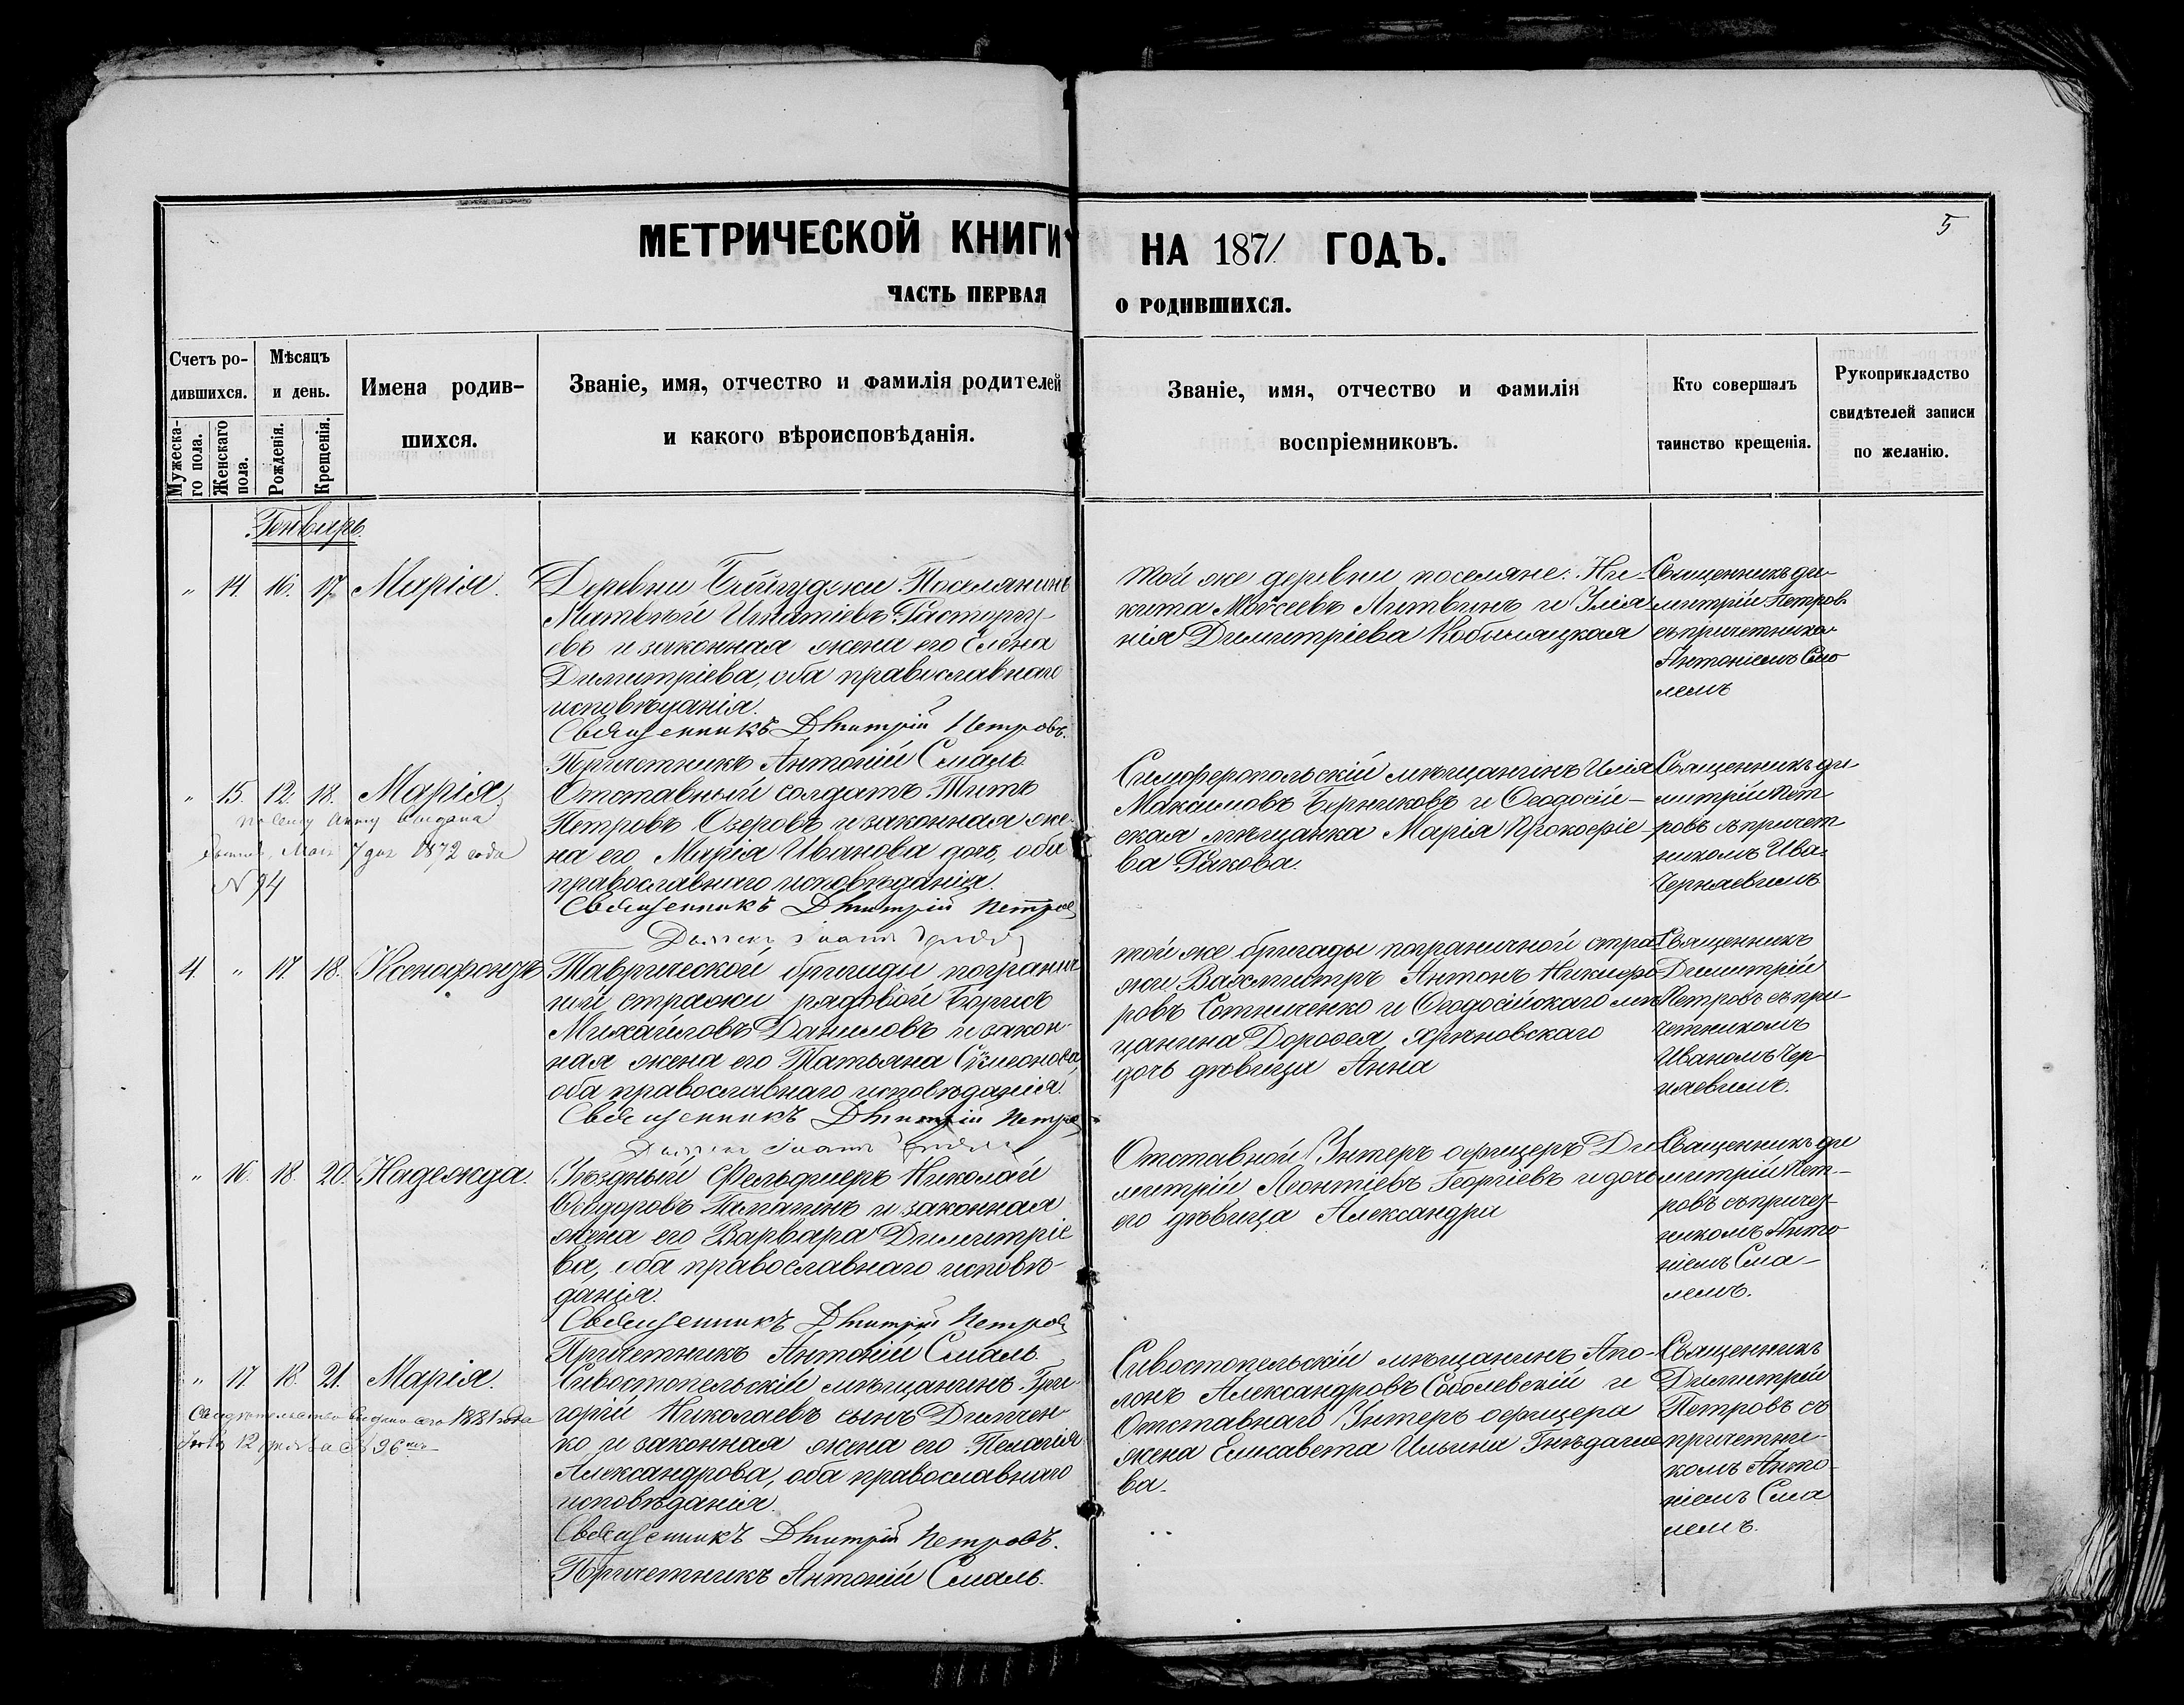 МЕТРИЧЕСКОЙ КНИГИ НА 1871 ГОДЪ.
5
ЧАСТЬ ПЕРВАЯ О РОДИВШИХСЯ.
Счетъ ро-
дившихся.
Мужеска-
го пола.
Женскаго
пола.
Мѣсяцъ
и день.
Рожденія.
Крещенія.
Имена родив-
шихся.
Званіе, имя, отчество и фамилія родителей
и какого вѣроисповѣданія.
Званіе, имя, отчество и фамилія
воспріемниковъ.
Кто совершалъ
таинство крещенія.
Рукоприкладство
свидѣтелей записи
по желанію.
Генварь.
" 14. 16. 17. Марія.
Деревни Поселянинъ
Матвѣй Игнатіевъ Расторгу-
евъ и законная жена его Елена
Димитріева, оба православнаго
исповѣданія.
Священникъ Дмитрій Петровъ.
Причетникъ Антоній Смаль
Той же деревни поселяне: Ни-
кита Моисеевъ Литвинъ и Іулія-
нія Димитріева Кобыляцкая
Священникъ Ди-
митрій Петров.
съ причетнико
Антоніемъ Сма
лемъ
" 15. 12. 18. Марія.
по сему акту выдана
Мая 7 дня 1872 года
№ 94
Отставный солдатъ Титъ
Петровъ Озеровъ и законная же-
на его Марія Иванова дочь, оба
православнаго исповѣданія.
Священникъ Дмитрій Петров
Симферопольскій мѣщанинъ Илія
Максимовъ Берниковъ и Ѳеодосій-
ская мѣщанка Марія Прокофіе-
ва Ракова.
Священникъ Ди
митрій Пет
ровъ съ причет
никомъ Ива.
Черняевимъ
4. " 17. 18. Ксенофонтъ
Таврической бригады погранич
ной стражи рядовой Борисъ
Михайловъ Даниловъ и закон-
ная жена его Татьяна Симеонова,
оба православнаго исповѣданія.
Священникъ Дмитрій Петров
Той же бригады пограничной стра
жи Вахмистръ Антонъ Никифо
ровъ Сотниченко и Ѳеодосійскаго мѣ
щанина Дороѳея Яриновскаго
дочь дѣвица Анна
Священникъ
Димитрій
Петровъ съ при-
четникомъ
Иваномъ Чер-
няевимъ.
" 16. 18. 20. Надежда.
Уѣздный Фельдшеръ Николай
Ѳеодоровъ и законная
жена его Варвара Димитріе
ва, оба православнаго исповѣ-
данія.
Священникъ Дмитрій Петров
Причетникъ Антоній Смаль.
Отставной Унтеръ офицеръ Ди
митрій Леонтіевъ Георгіевъ и дочь
его дѣвица Александра
Священникъ Ди
митрій Пет-
ровъ съ причет-
никомъ Анто
ніемъ Сма-
лемъ.
" 17. 18. 21. Марія.
Свидѣтельство выдано 1881 года
12 № 96
Сивостопельскій мѣщанинъ Гри
горій Николаевъ сынъ Димчен-
ко и законная жена его Пелагія
Александрова, оба православнаго
исповѣданія.
Священникъ Дмитрій Петровъ.
Причетникъ Антоній Смаль.
Сивостопельскій мѣщанинъ Апо-
лонъ Александровъ Соболевскій и
Отставнаго Унтеръ офицера
жена Елисавета Ильина Гнѣдаше
ва.
Священникъ
Димитрій
Петровъ съ
причетни-
комъ Анто-
ніемъ Сма
лемъ.